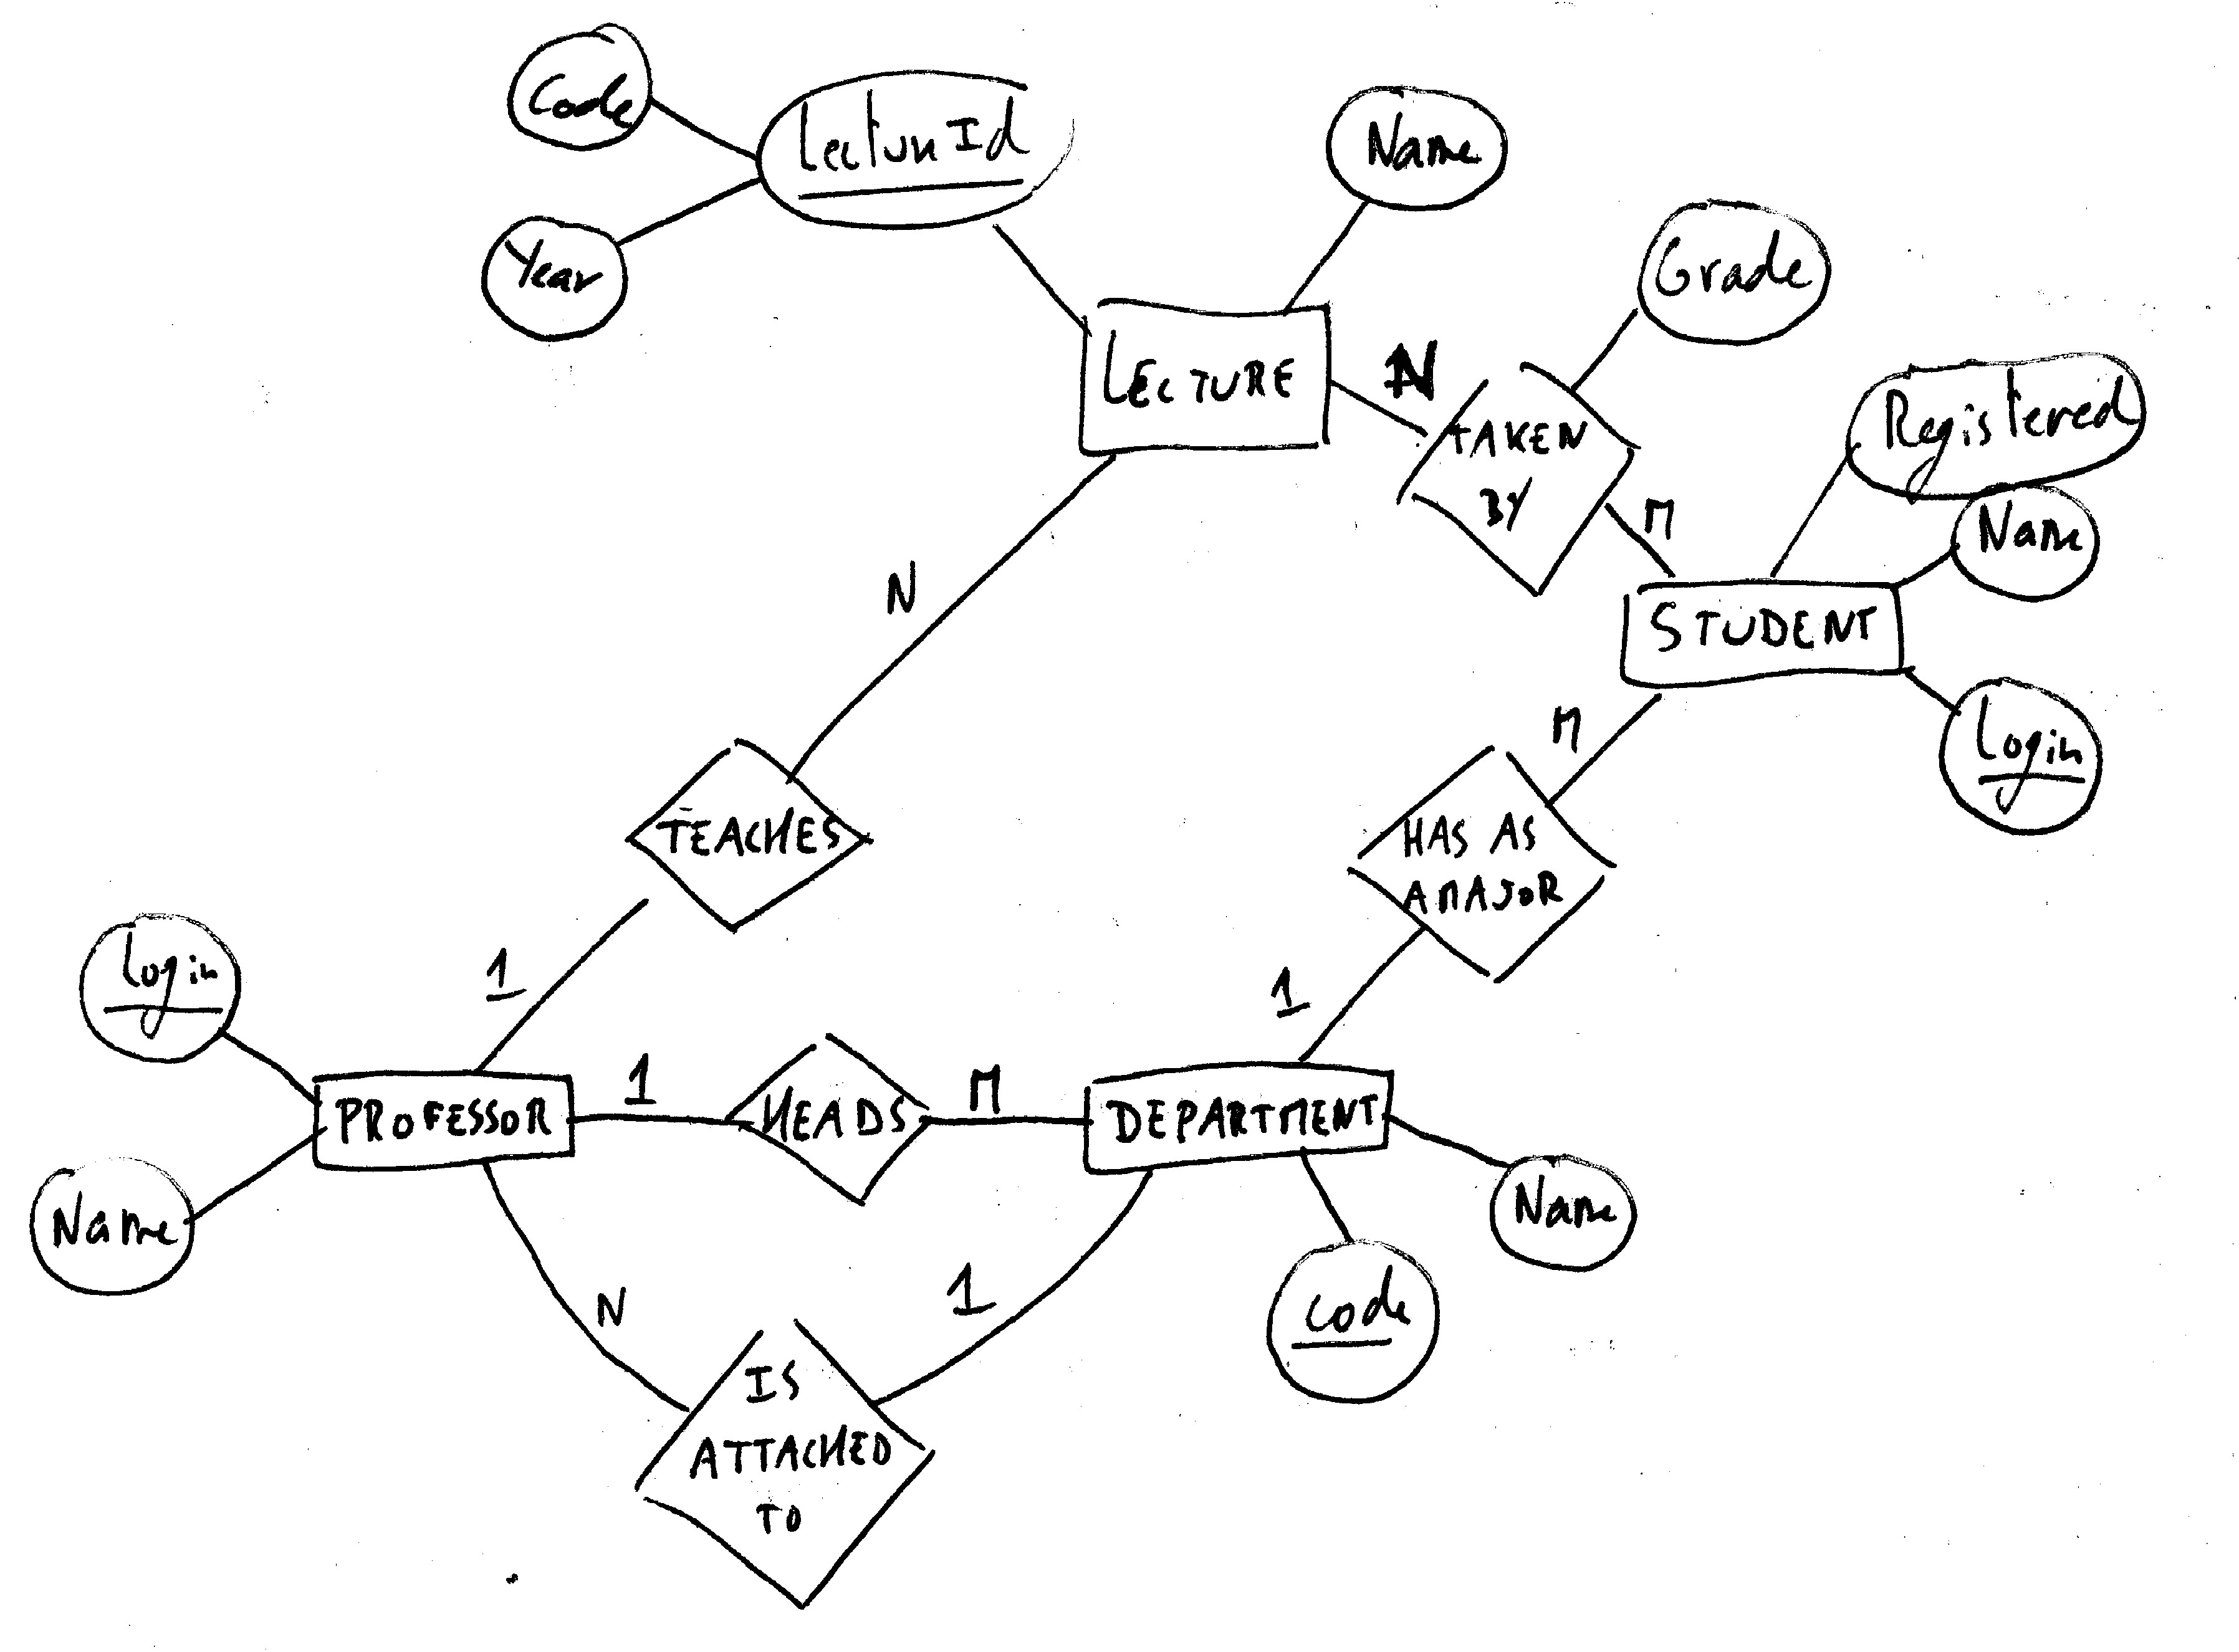 Code
LectureId
Name
Year
Grade
LECTURE
N
TAKEN
BY
Registered
M
Name
STUDENT
N
M
Login
TEACHES
HAS AS
A MAJOR
Login
1
1
PROFESSOR
1
HEADS
M
DEPARTMENT
Name
Name
N
1
code
IS
ATTACHED
TO